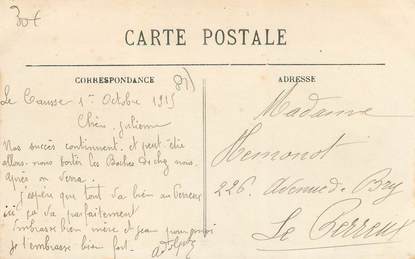 30€
CARTE POSTALE
CORRESPONDANCE
ADRESSE
Le Causse 1er Octobre 1915
Chère Julienne
Nos succès continuent et peut être
allons nous sortir les Boches de chez nous
après on verra.
J'espère que tout va bien au Perreux
ici ça va parfaitement
Embrasse bien mère et Jean pour moi
je t'embrasse bien fort.
Madame
Hemonot
226 Avenue de Bry
Le Perreux